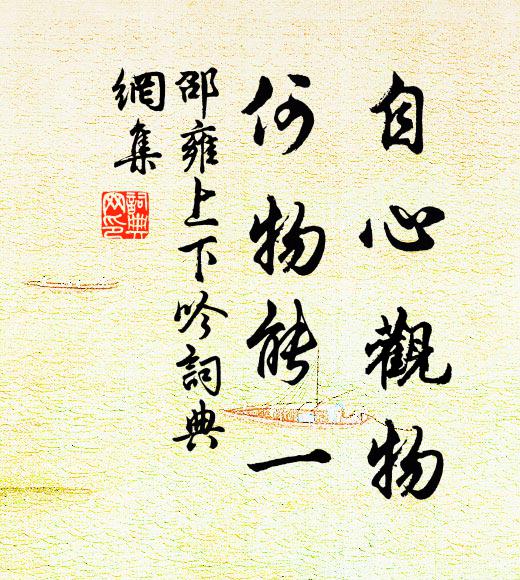 自心觀物
何物能一
邵雍上下吟詞典
網集
詞典
网印